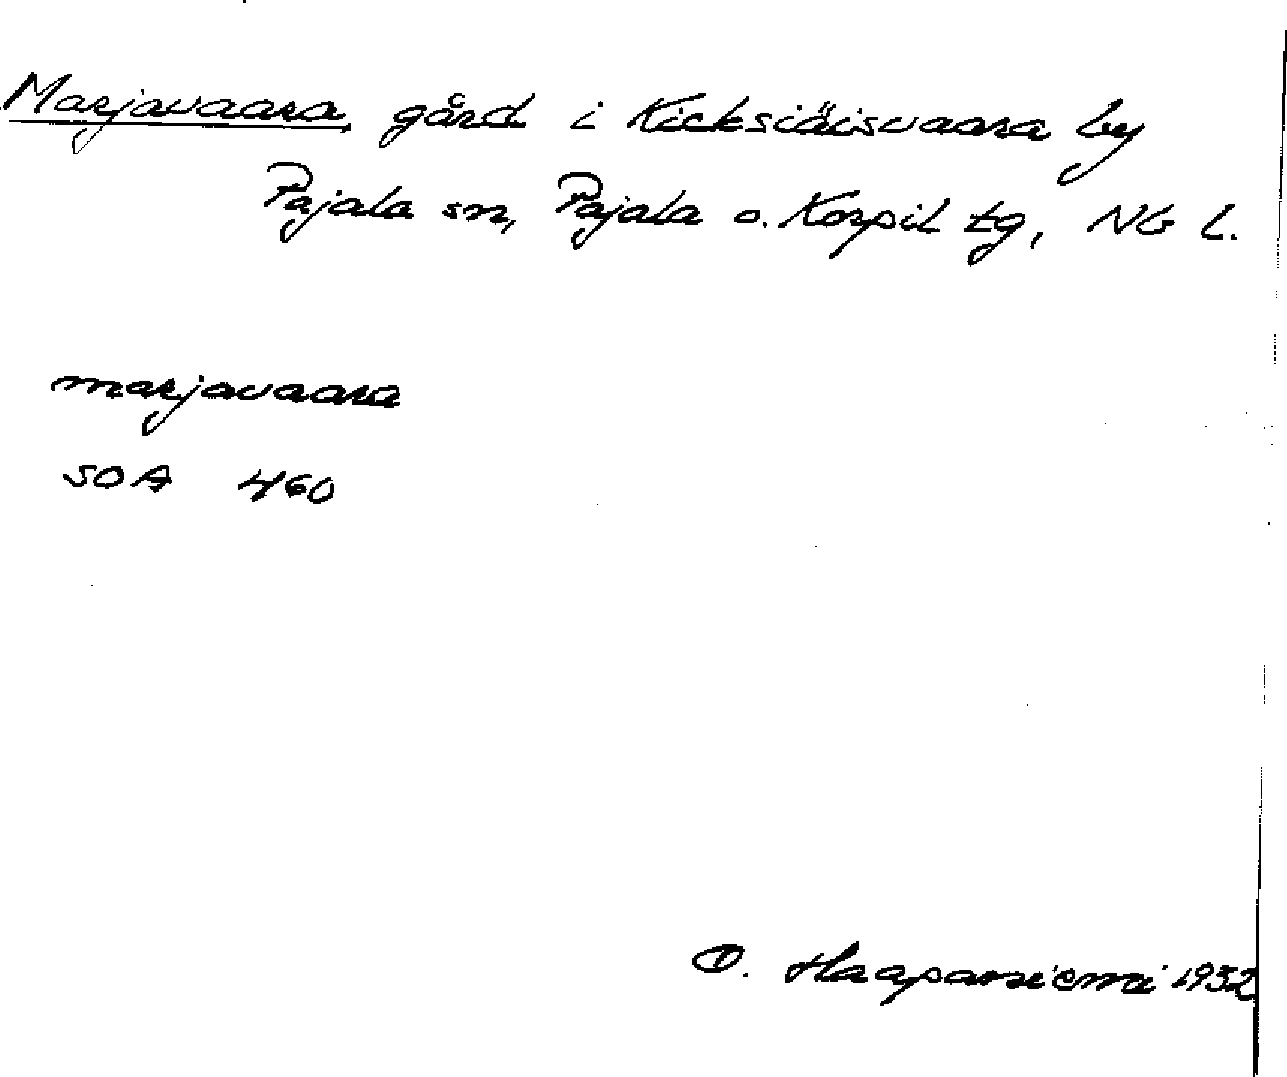 Marjavaara, gård i Kieksiäisvaara by
Pajala sn, Pajala o. Korpil tg, NB L.
marjavaara
SOA 460
O. Haapaniemi 1932